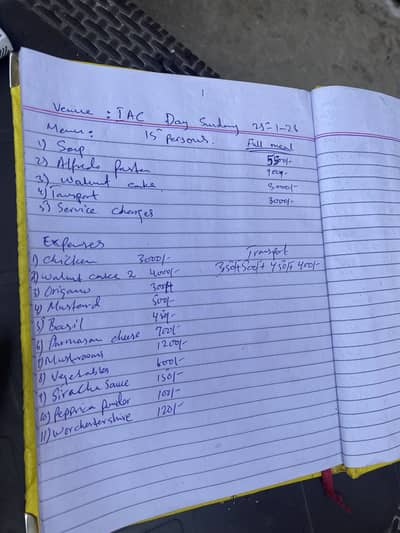 1
Venue : TAC Day Sunday 25-1-26
Menu : 15 persons. Full meal
1) Soup 5500/-
2) Alfredo pasta 900/-
3) Walnut cake 3000/-
4) Transport 3000/-
5) Service charges
Expenses
Transport
1) Chicken 3000/-
2) Walnut cakes 2 4000/- 350+500+450+400/-
3) Origano 300/-
4) Mustard 500/-
5) Basil 450/-
6) Parmasan cheese 700/-
7) Mustrooms 1200/-
8) Vegetables 600/-
9) Siracha Sauce 150/-
10) Peprica powder 100/-
11) Worchestershire 120/-